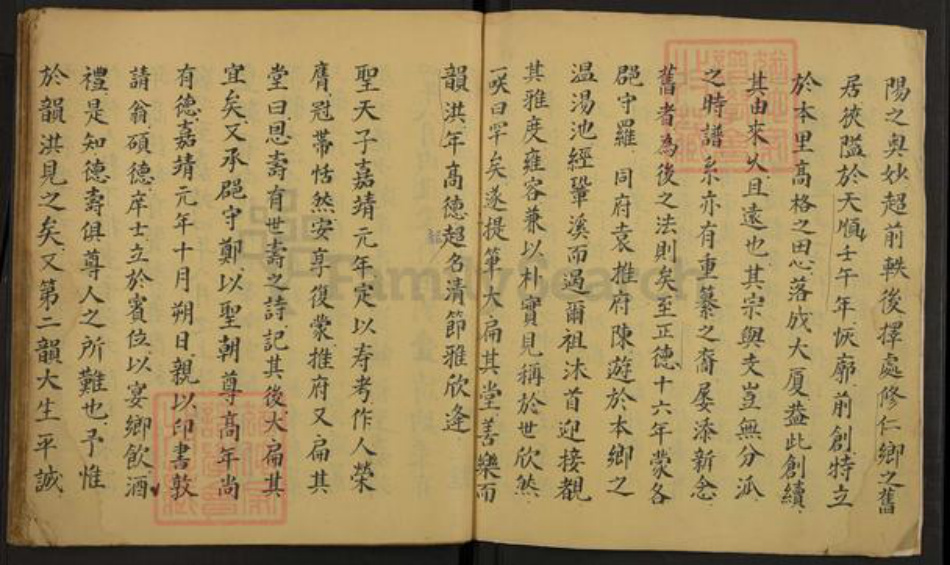 陽之奥妙超前軼後擇處修仁鄉之舊
居狹隘於天順壬午年恢廓前創特立
於本里高格之思心落成大厦益此創續
其由來久且遠也其宗與支豈無分派
之時譜系亦有重纂之裔屡添新念
舊者為後之法則矣至正德十六年蒙各
郡守羅 同府袁推府陳遊於本鄉之
温湯池經鞏溪而過爾祖沐首迎接覩
其雅度雍容兼以朴實見稱於世欣然
一咲曰罕矣遂提筆大扁其堂善樂而
韻洪年髙德超名清節雅欣逢
聖天子嘉靖元年定以寿考作人榮
膺冠帶恬然安享復蒙推府又扁其
堂曰恩壽有世壽之詩記其後大扁其
宜矣又承郡守鄭以聖朝尊髙年尚
有德嘉靖元年十月朔日親以印書敦
請翁碩德庠士立於賓位以宴鄉飲酒
禮是知德壽俱尊人之所難也予惟
於韻洪見之矣又第二韻大生平誠
FamilySearch